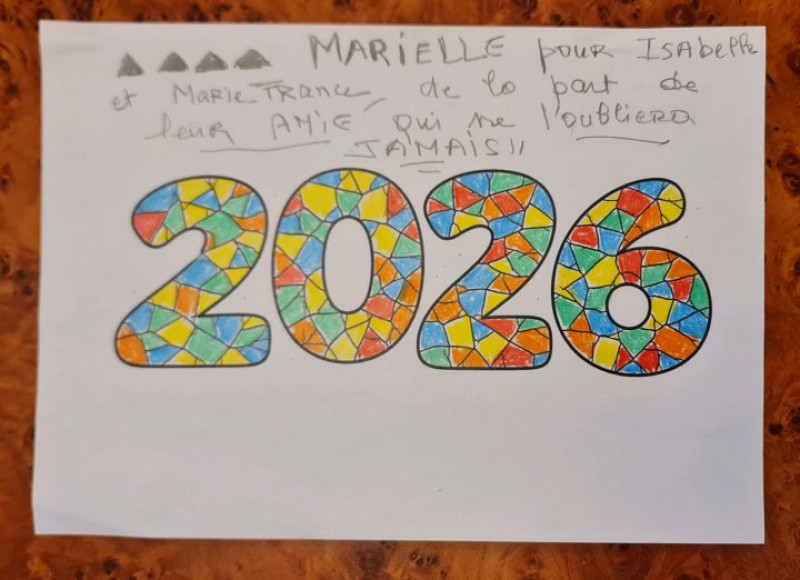 MARIELLE pour ISAbelle
et MARIE FRANCE, de la part de
leur AMIE qui ne l'oubliera
JAMAIS!!
2026